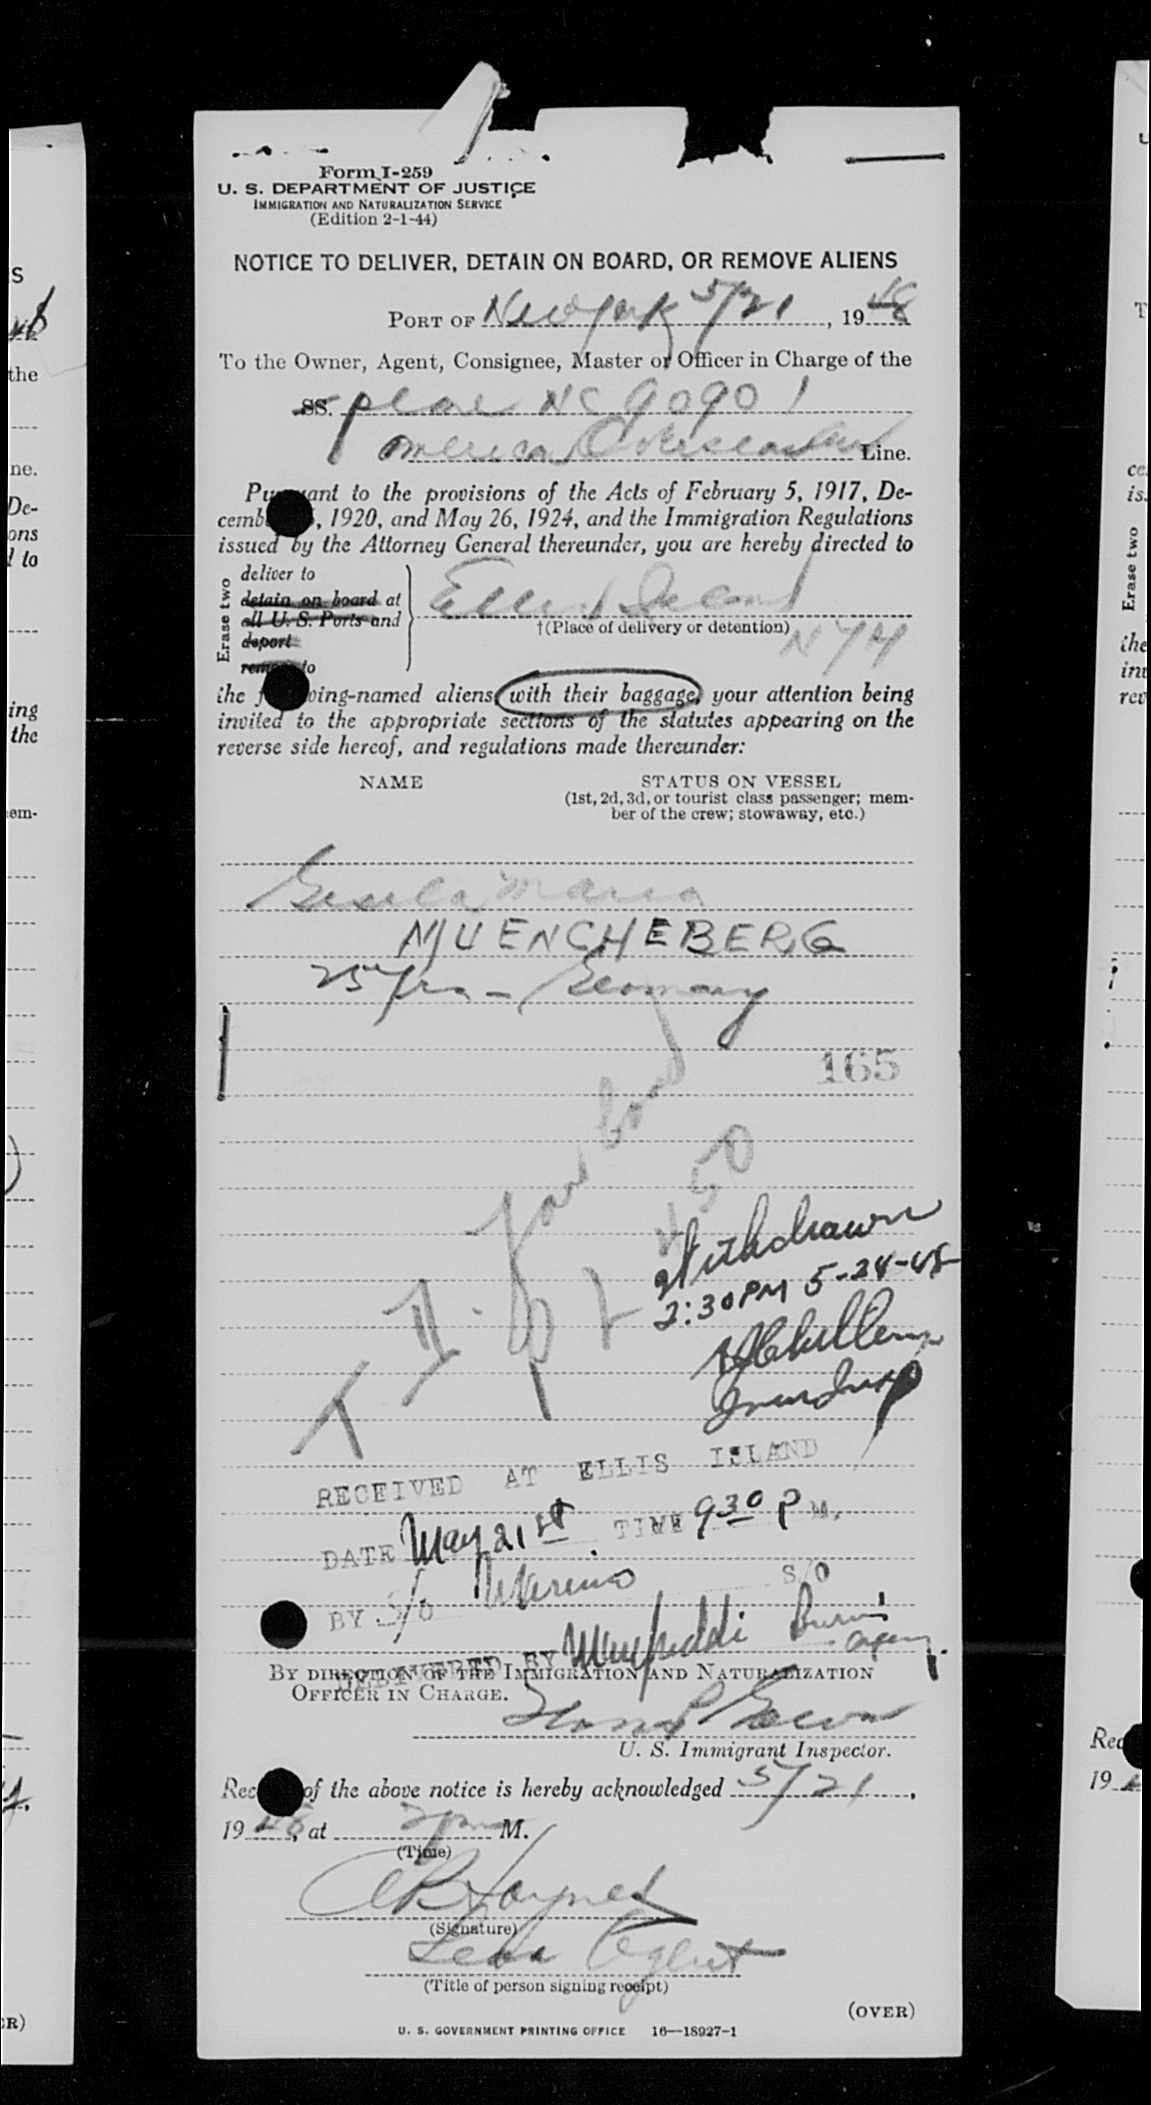 Form I-259
U. S. DEPARTMENT OF JUSTICE
IMMIGRATION AND NATURALIZATION SERVICE
(Edition 2-1-44)
NOTICE TO DELIVER, DETAIN ON BOARD, OR REMOVE ALIENS
PORT OF New York 5/21, 1948
To the Owner, Agent, Consignee, Master or Officer in Charge of the
SS. plane NC 90901
American Overseas Line.
Pu ant to the provisions of the Acts of February 5, 1917, De-
cemb , 1920, and May 26, 1924, and the Immigration Regulations
issued by the Attorney General thereunder, you are hereby directed to
Erase two
deliver to
detain on board at
all U. S. Ports and
deport
remove to
Ellis Island
†(Place of delivery or detention)
N Y H
the f wing-named aliens, with their baggage, your attention being
invited to the appropriate sections of the statutes appearing on the
reverse side hereof, and regulations made thereunder:
NAME STATUS ON VESSEL
(1st, 2d, 3d, or tourist class passenger; mem-
ber of the crew; stowaway, etc.)
Gisela Maria
MUENCHEBERG
25 yrs - Germany
165
450
Withdrawn
2:30 PM 5-24-48
RECEIVED AT ELLIS ISLAND
DATE May 21st TIME 930 P M.
BY S/O S/O
DELIVERED BY Manfreddi
BY DIRECTION OF THE IMMIGRATION AND NATURALIZATION
OFFICER IN CHARGE.
U. S. Immigrant Inspector.
Rec of the above notice is hereby acknowledged 5/21,
1948, at 2 pm M.
(Time)
CB Haynes
(Signature)
Agent
(Title of person signing receipt)
(OVER)
U. S. GOVERNMENT PRINTING OFFICE 16—18927-1